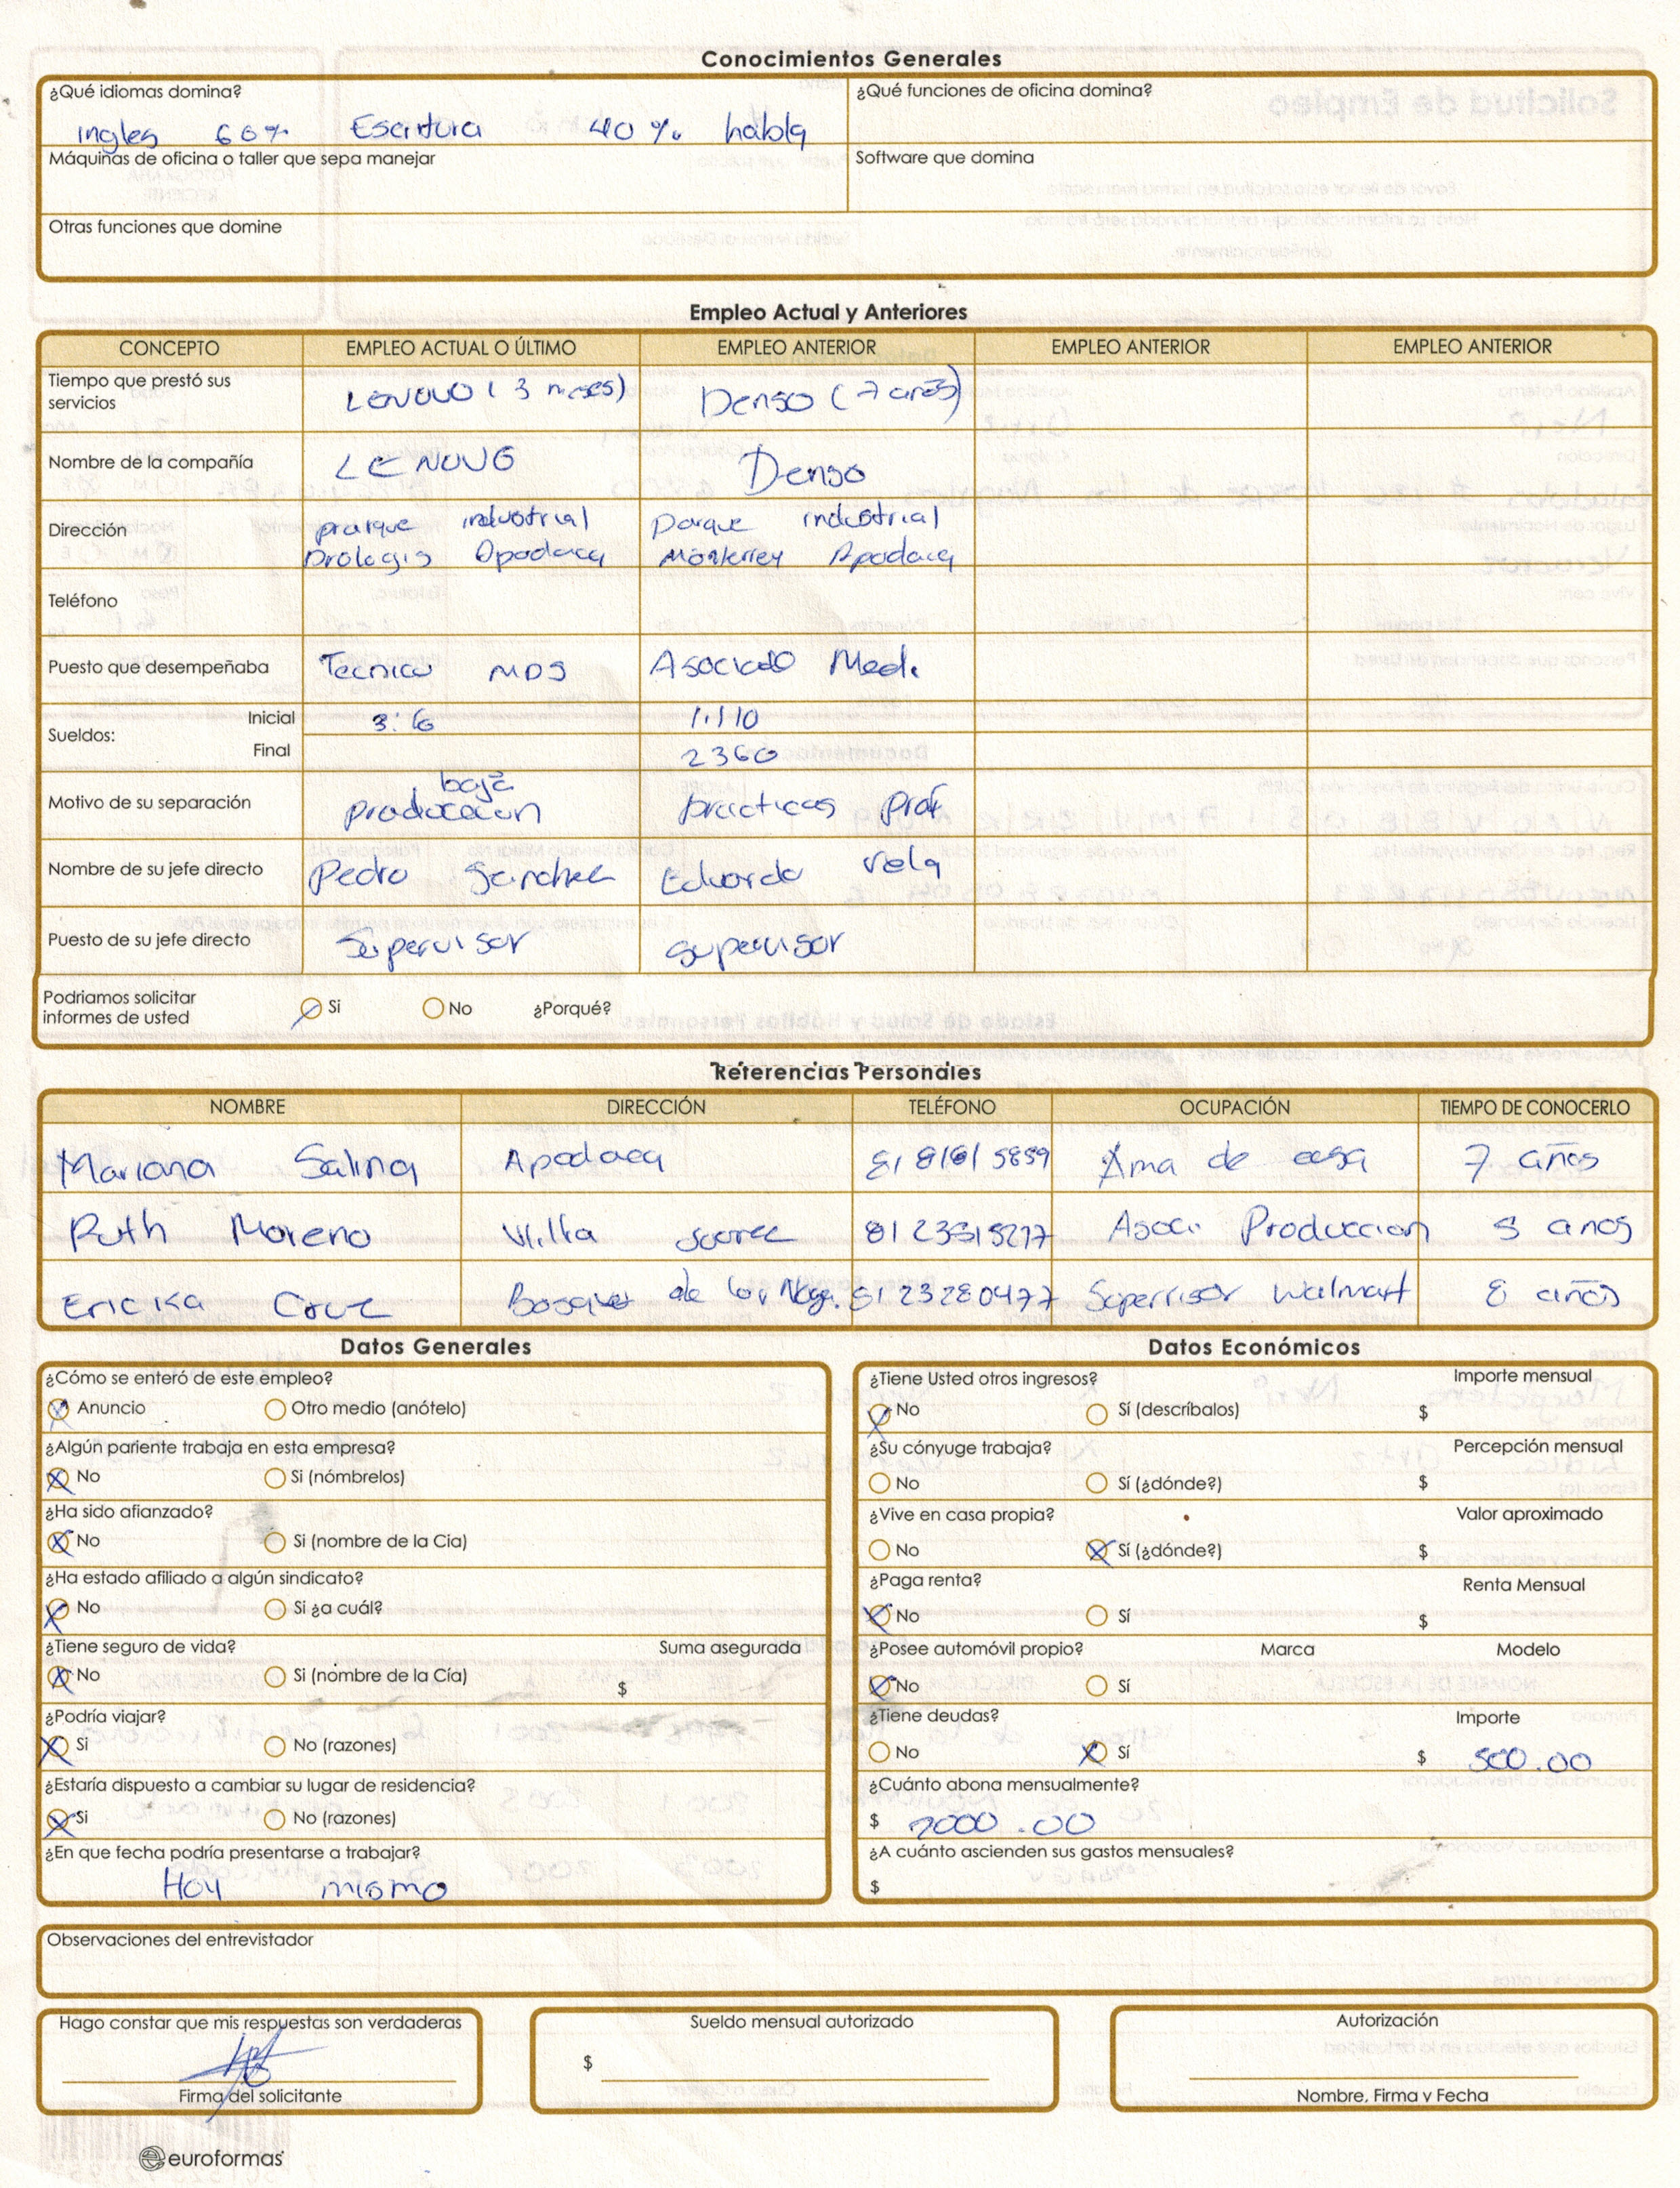 Conocimientos Generales
¿Qué idiomas domina? ¿Qué funciones de oficina domina?
ingles 60% Escritura 40% habla
Máquinas de oficina o taller que sepa manejar Software que domina
Otras funciones que domine
Empleo Actual y Anteriores
CONCEPTO EMPLEO ACTUAL O ÚLTIMO EMPLEO ANTERIOR EMPLEO ANTERIOR EMPLEO ANTERIOR
Tiempo que prestó sus servicios LENOVO (3 meses) Denso (7 años)
Nombre de la compañía LENOVO Denso
Dirección parque industrial parque industrial
Prologis Apodaca Monterrey Apodaca
Teléfono
Puesto que desempeñaba Tecnico MDS Asociado Med.
Sueldos: Inicial 1,110
Final 2360
Motivo de su separación baja produccion practicas prof
Nombre de su jefe directo Pedro Sanchez Eduardo Vela
Puesto de su jefe directo Supervisor supervisor
Podriamos solicitar informes de usted Si No ¿Porqué?
Referencias Personales
NOMBRE DIRECCIÓN TELÉFONO OCUPACIÓN TIEMPO DE CONOCERLO
Mariana Salina Apodaca Ama de casa 7 años
Ruth Moreno Villa Asoc. Produccion 5 anos
Ericka Cruz Bosques de los Noga. 8123280477 Supervisor Walmart 8 años
Datos Generales Datos Económicos
¿Cómo se enteró de este empleo? ¿Tiene Usted otros ingresos? Importe mensual
Anuncio Otro medio (anótelo) No Sí (descríbalos) $
¿Algún pariente trabaja en esta empresa? ¿Su cónyuge trabaja? Percepción mensual
No Si (nómbrelos) No Sí (¿dónde?) $
¿Ha sido afianzado? ¿Vive en casa propia? Valor aproximado
No Si (nombre de la Cia) No Sí (¿dónde?) $
¿Ha estado afiliado a algún sindicato? ¿Paga renta? Renta Mensual
No Si ¿a cuál? No Sí $
¿Tiene seguro de vida? Suma asegurada ¿Posee automóvil propio? Marca Modelo
No Si (nombre de la Cía) $ No Sí
¿Podría viajar? ¿Tiene deudas? Importe
Si No (razones) No Sí $ 500.00
¿Estaría dispuesto a cambiar su lugar de residencia? ¿Cuánto abona mensualmente?
Si No (razones) $ 2000.00
¿En que fecha podría presentarse a trabajar? ¿A cuánto ascienden sus gastos mensuales?
Hoy mismo $
Observaciones del entrevistador
Hago constar que mis respuestas son verdaderas Sueldo mensual autorizado Autorización
$
Firma del solicitante Nombre, Firma y Fecha
euroformas